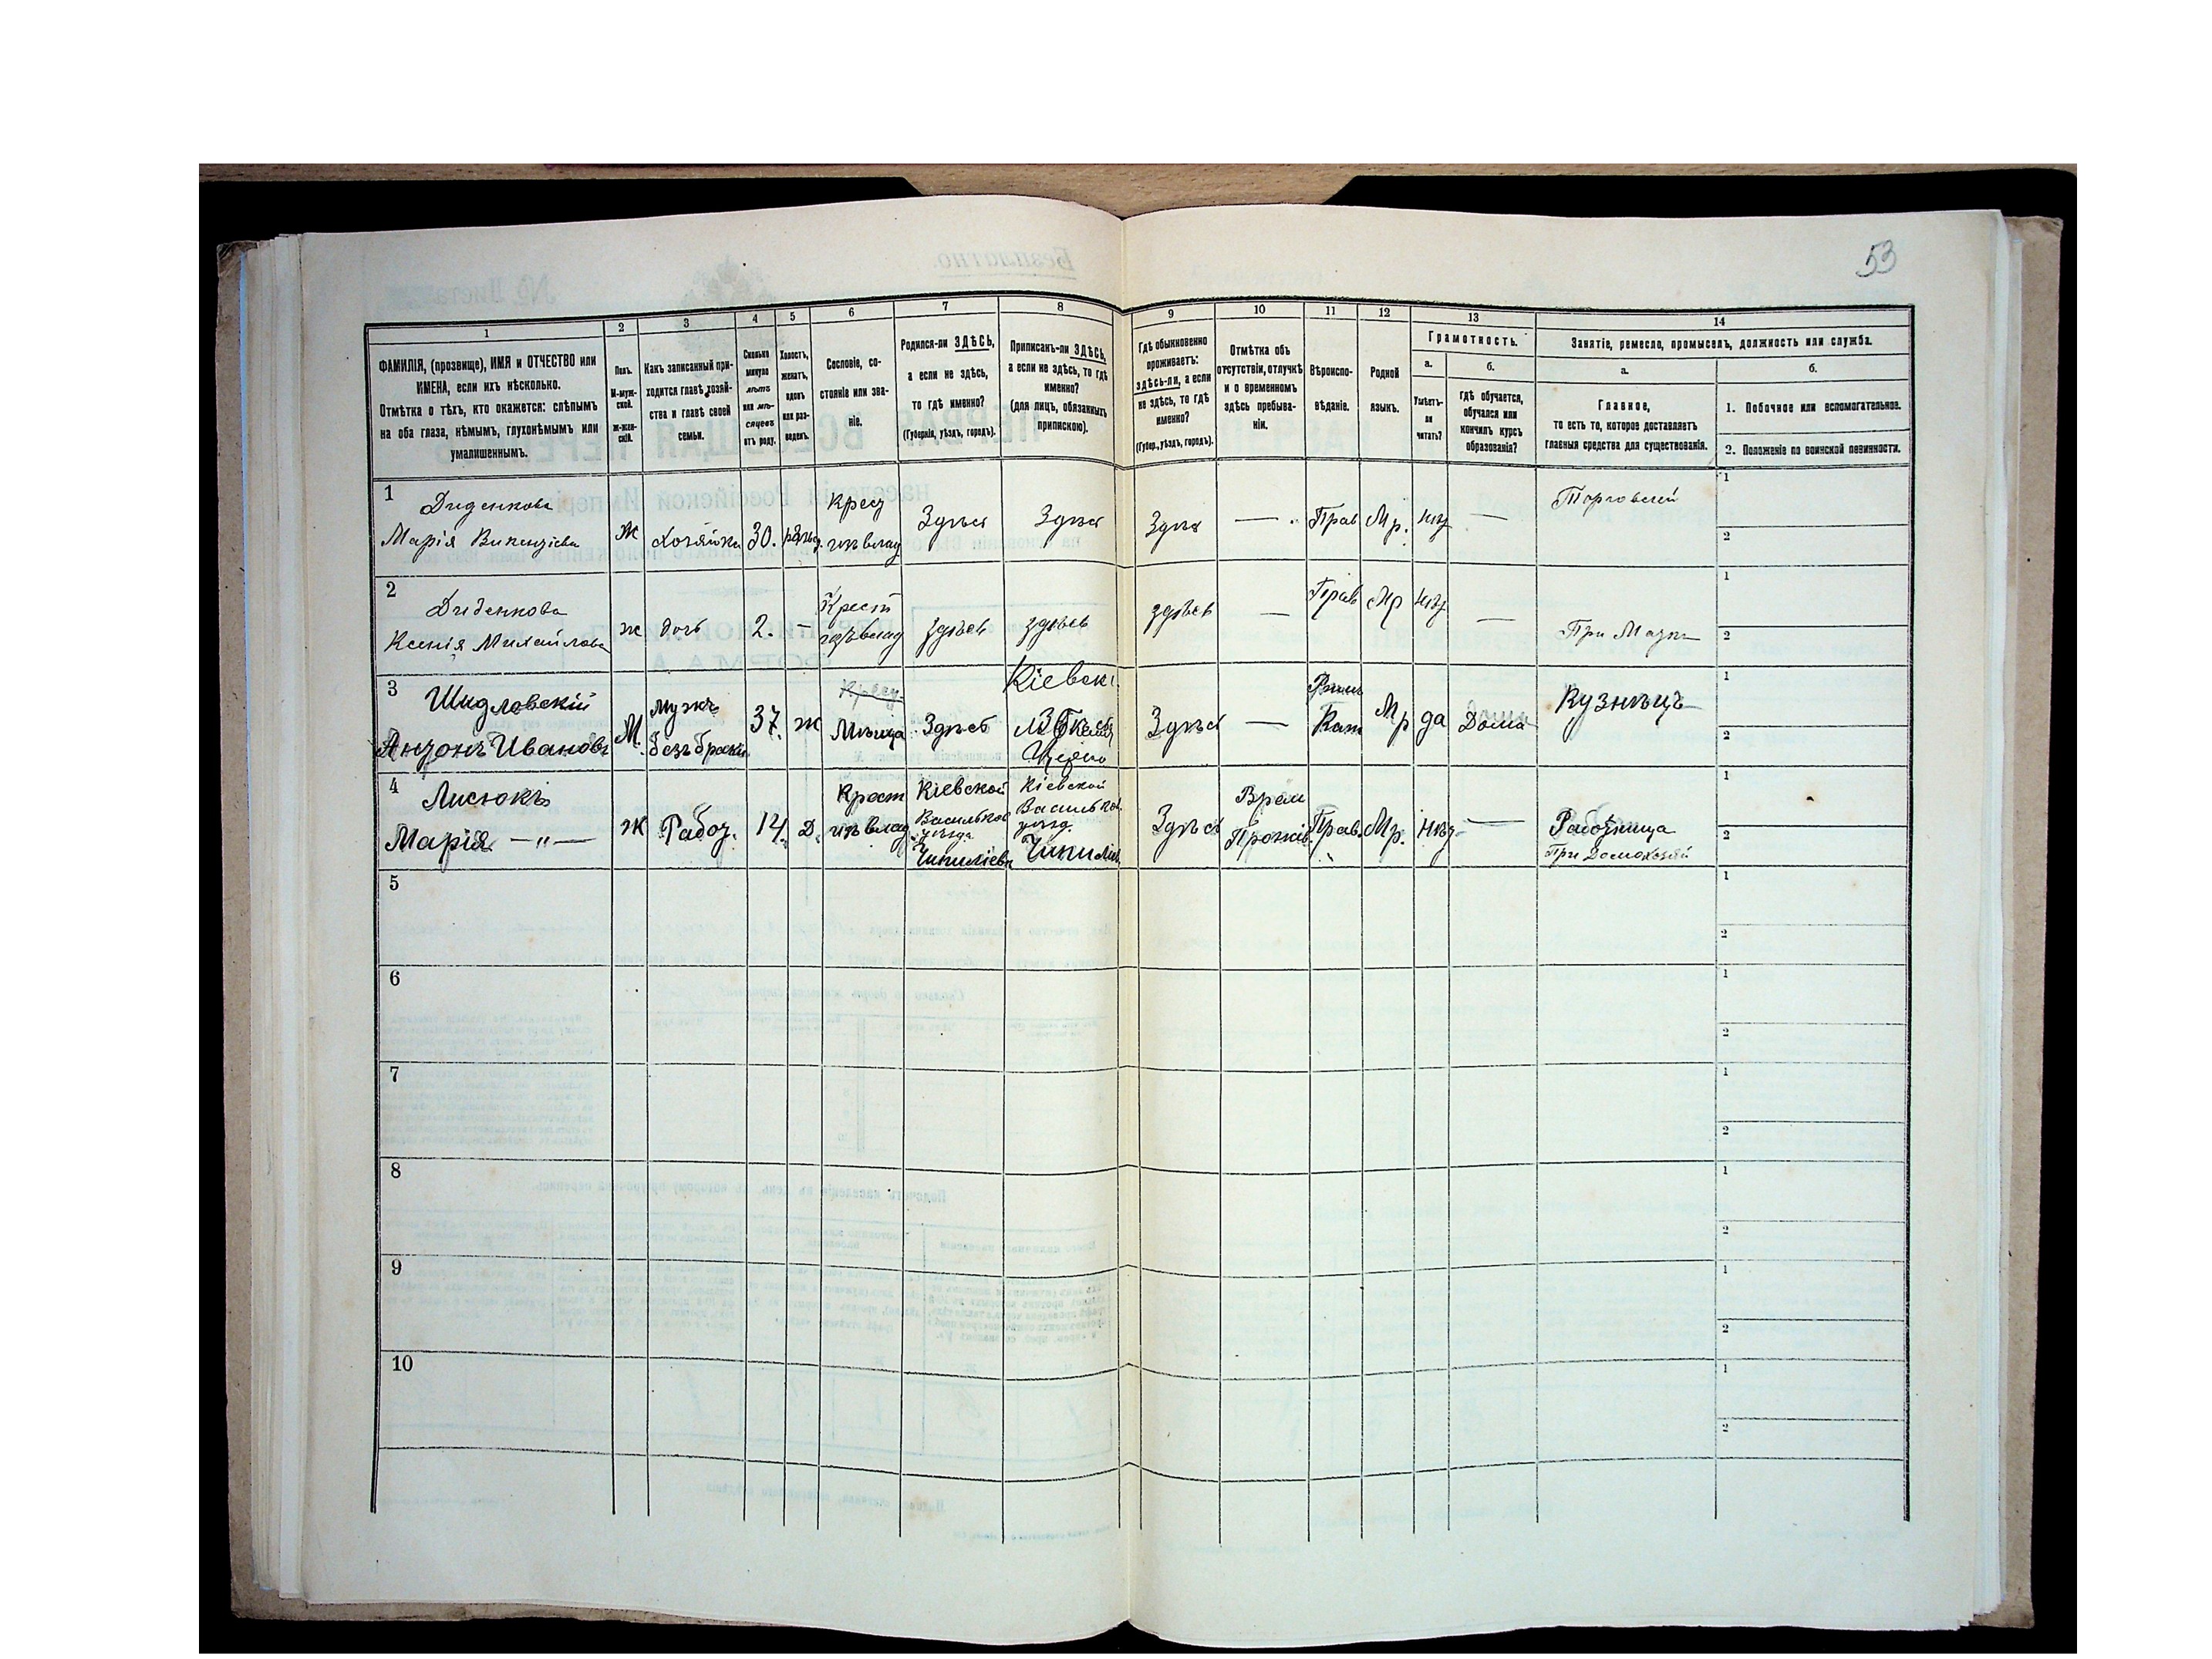 53
1
2
3
4
5
6
7
8
9
10
11
12
13
14
ФАМИЛІЯ, (прозвище), ИМЯ и ОТЧЕСТВО или
ИМЕНА, если ихъ нѣсколько.
Отмѣтка о тѣхъ, кто окажется: слѣпымъ
на оба глаза, нѣмымъ, глухонѣмымъ или
умалишеннымъ.
Полъ.
М-муж-
ской.
ж-жен-
скій.
Какъ записанный при-
ходится главѣ хозяй-
ства и главѣ своей
семьи.
Сколько
минуло
лѣтъ
или мѣ-
сяцевъ
отъ роду.
Холостъ,
женатъ,
вдовъ
или раз-
веденъ.
Сословіе, со-
стояніе или зва-
ніе.
Родился-ли ЗДѢСЬ,
а если не здѣсь,
то гдѣ именно?
(Губернія, уѣздъ, городъ).
Приписанъ-ли ЗДѢСЬ,
а если не здѣсь, то гдѣ
именно?
(для лицъ, обязанныхъ
припискою).
Гдѣ обыкновенно
проживаетъ:
здѣсь-ли, а если
не здѣсь, то гдѣ
именно?
(Губер., уѣздъ, городъ).
Отмѣтка объ
отсутствіи, отлучкѣ
и о временномъ
здѣсь пребыва-
ніи.
Вѣроиспо-
вѣданіе.
Родной
языкъ.
Грамотность.
а.
Умѣетъ-
ли
читать?
б.
Гдѣ обучается,
обучался или
кончилъ курсъ
образованія?
Занятіе, ремесло, промыселъ, должность или служба.
а.
Главное,
то есть то, которое доставляетъ
главныя средства для существованія.
б.
1. Побочное или вспомогательное.
2. Положеніе по воинской повинности.
1 Диденкова
Марія Викентіева
Ж
Хозяйка
30.
Крест
Здѣсь
Здѣсь
Здѣсь
—
Прав
Мр.
нѣт
—
Торговлей
1
2
2 Диденкова
Ксенія Михайлова
ж
дочь
2.
—
Крест
здѣсь
здѣсь
здѣсь
—
Прав
Мр
нѣт
—
При Матери
1
2
3 Шидловскій
Антонъ Ивановъ
М.
мужъ
безъ брака
37.
ж
Мѣща
Здѣсь
Кіевск.
Здѣсь
—
Рим
Кат
Мр
да
Дома
Кузнѣцъ
1
2
4 Лисюкъ
Марія — " —
Ж
Работ.
14.
Д.
Крест
Кіевской
Васильков
уѣзда
Кіевской
Васильков.
уѣзд.
Здѣсь
Врем
Прожив.
Прав.
Мр.
нѣт
—
Работница
При Домохозяй
1
2
5
1
2
6
1
2
7
1
2
8
1
2
9
1
2
10
1
2